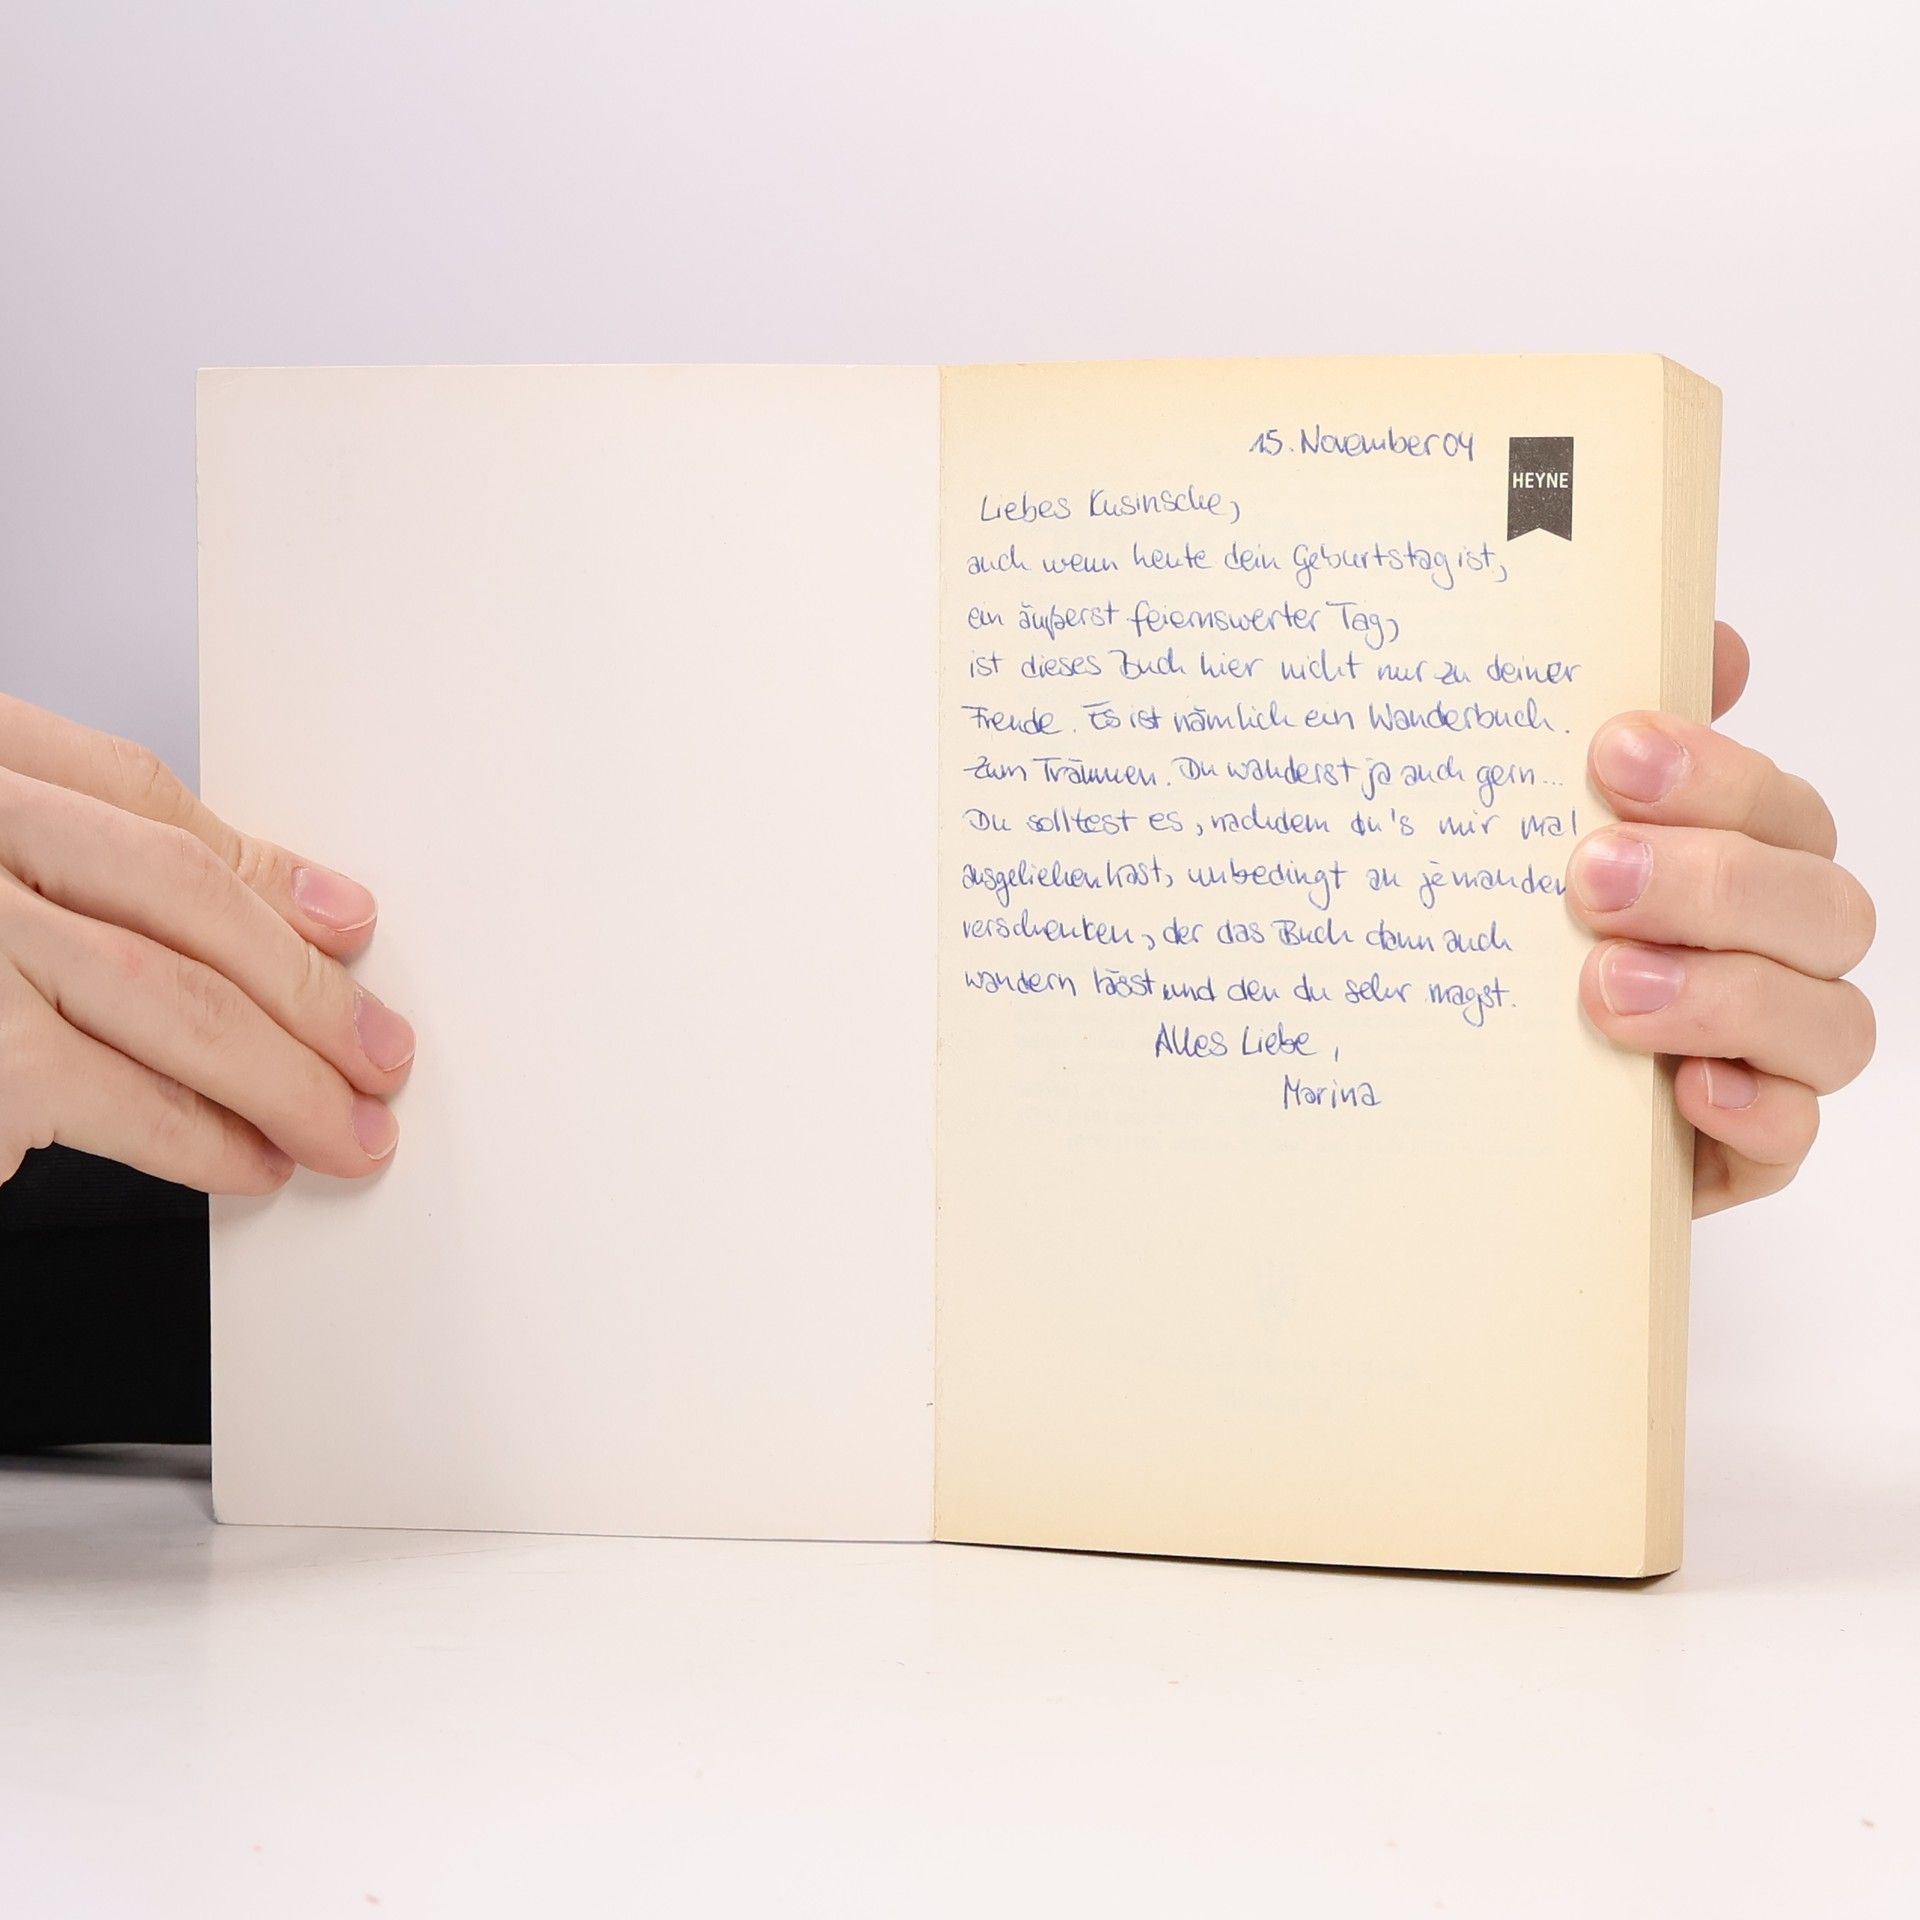 15. November 04
HEYNE
Liebes Kusinsche,
auch wenn heute dein Geburtstag ist,
ein äußerst feiernswerter Tag,
ist dieses Buch hier nicht nur zu deiner
Freude. Es ist nämlich ein Wanderbuch.
Zum Träumen. Du wanderst ja auch gern...
Du solltest es, nachdem du's mir mal
ausgeliehen hast, unbedingt an jemanden
verschenken, der das Buch dann auch
wandern lässt und den du sehr magst.
Alles Liebe,
Marina